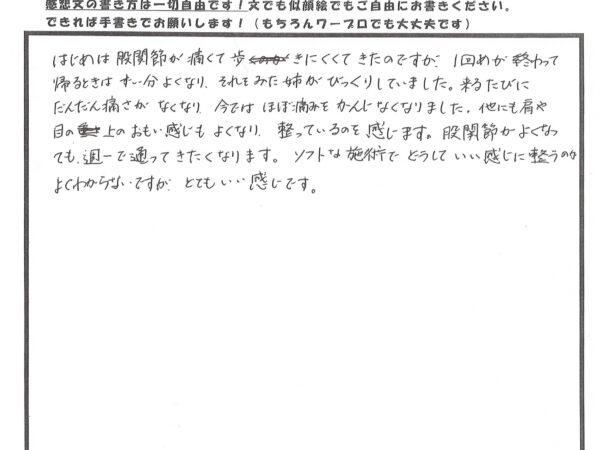 感想文の書き方は一切自由です！文でも似顔絵でもご自由にお書きください。
できれば手書きでお願いします！（もちろんワープロでも大丈夫です）
はじめは股関節が痛くて歩きにくくてきたのですが、1回めが終わって
帰るときはずい分よくなり、それをみた姉がびっくりしていました。来るたびに
だんだん痛さがなくなり、今ではほぼ痛みをかんじなくなりました。他にも肩や
目の上のおもい感じもよくなり、整っているのを感じます。股関節がよくなっ
ても、週一で通ってきたくなります。ソフトな施術でどうしていい感じに整うのか
よくわからないですが、とてもいい感じです。